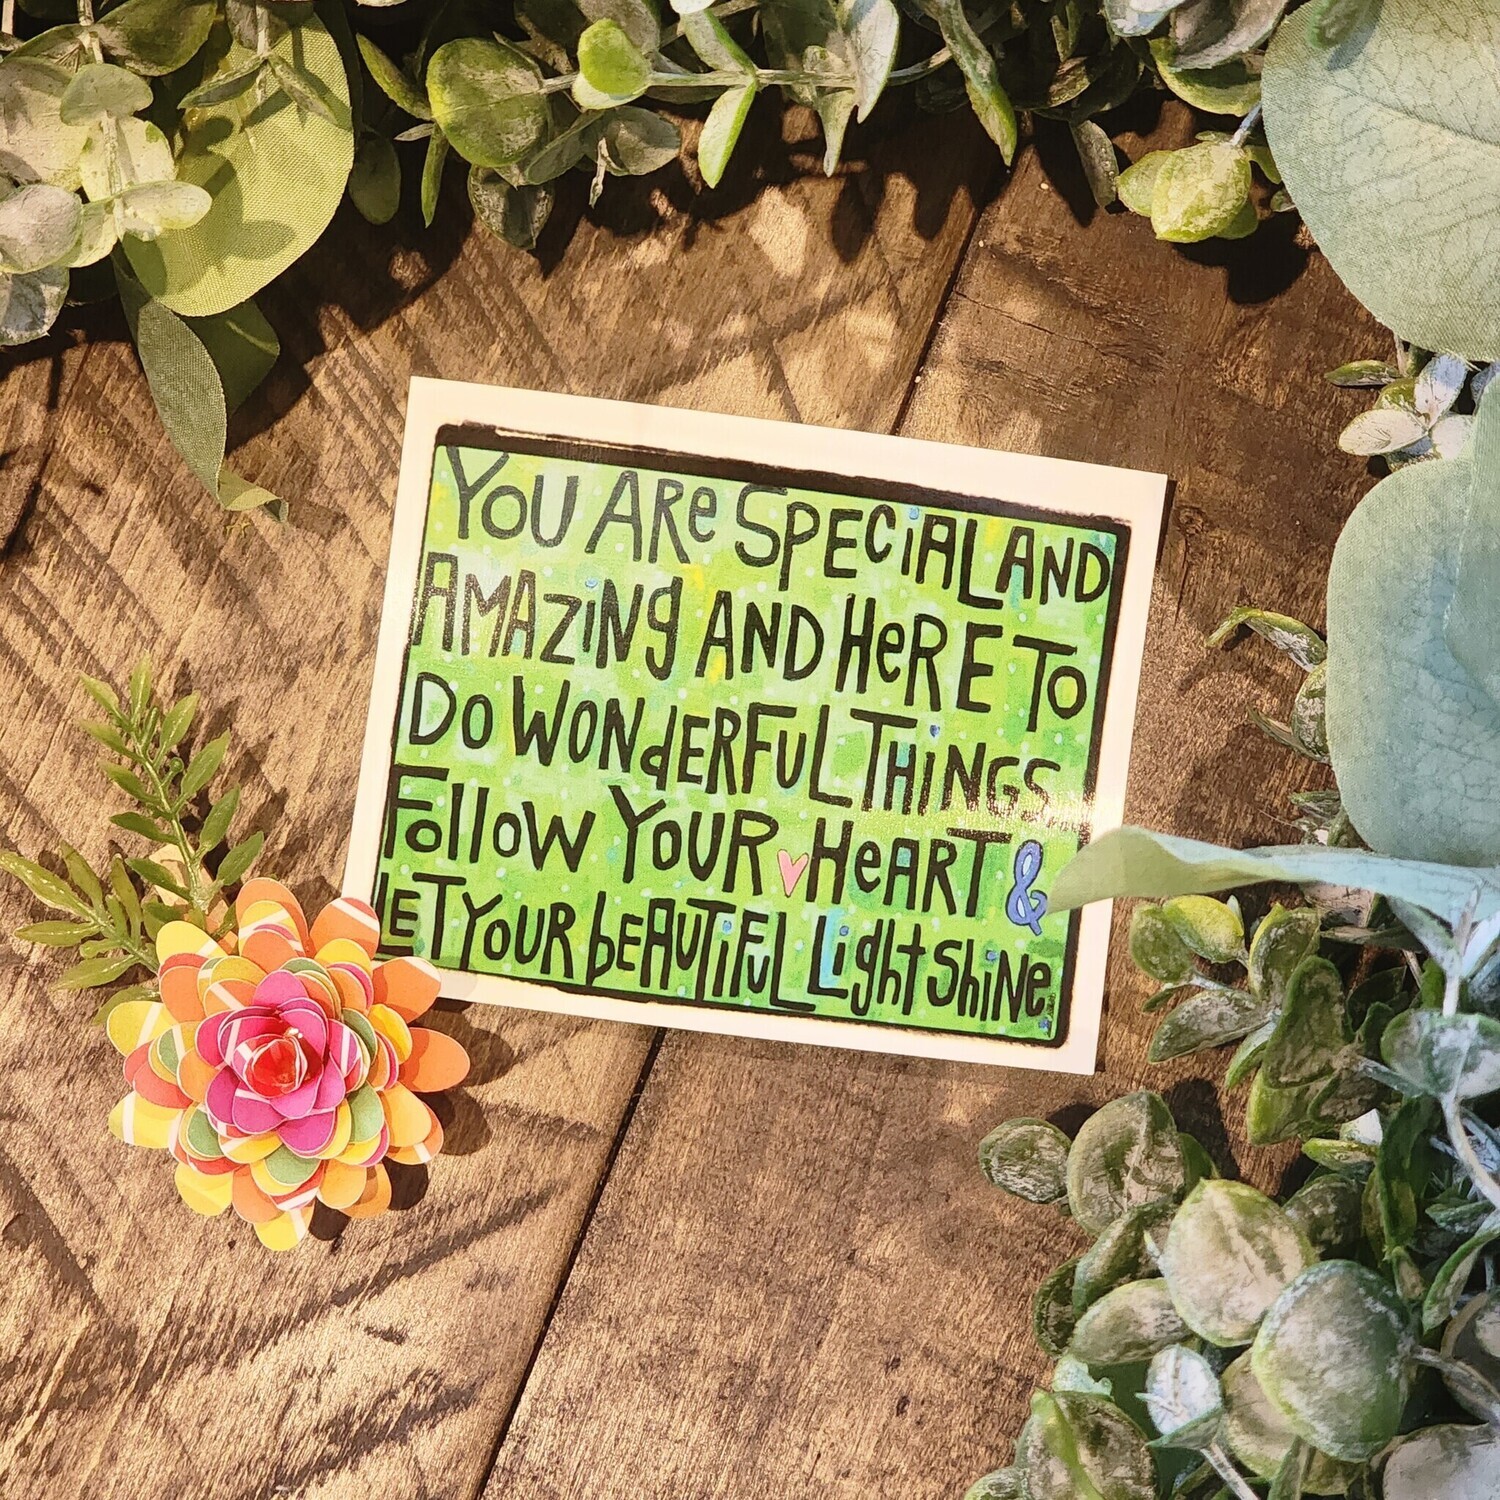 YOU ARe SPECiAL AND
AMAZiNg AND HeRE TO
DO WONdERFUL THiNGS...
Follow YOUR HeART &
LET YOUR bEAUTiFUL Light ShiNe.